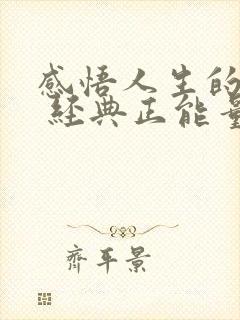 感悟人生的
經典正能量
齊平景